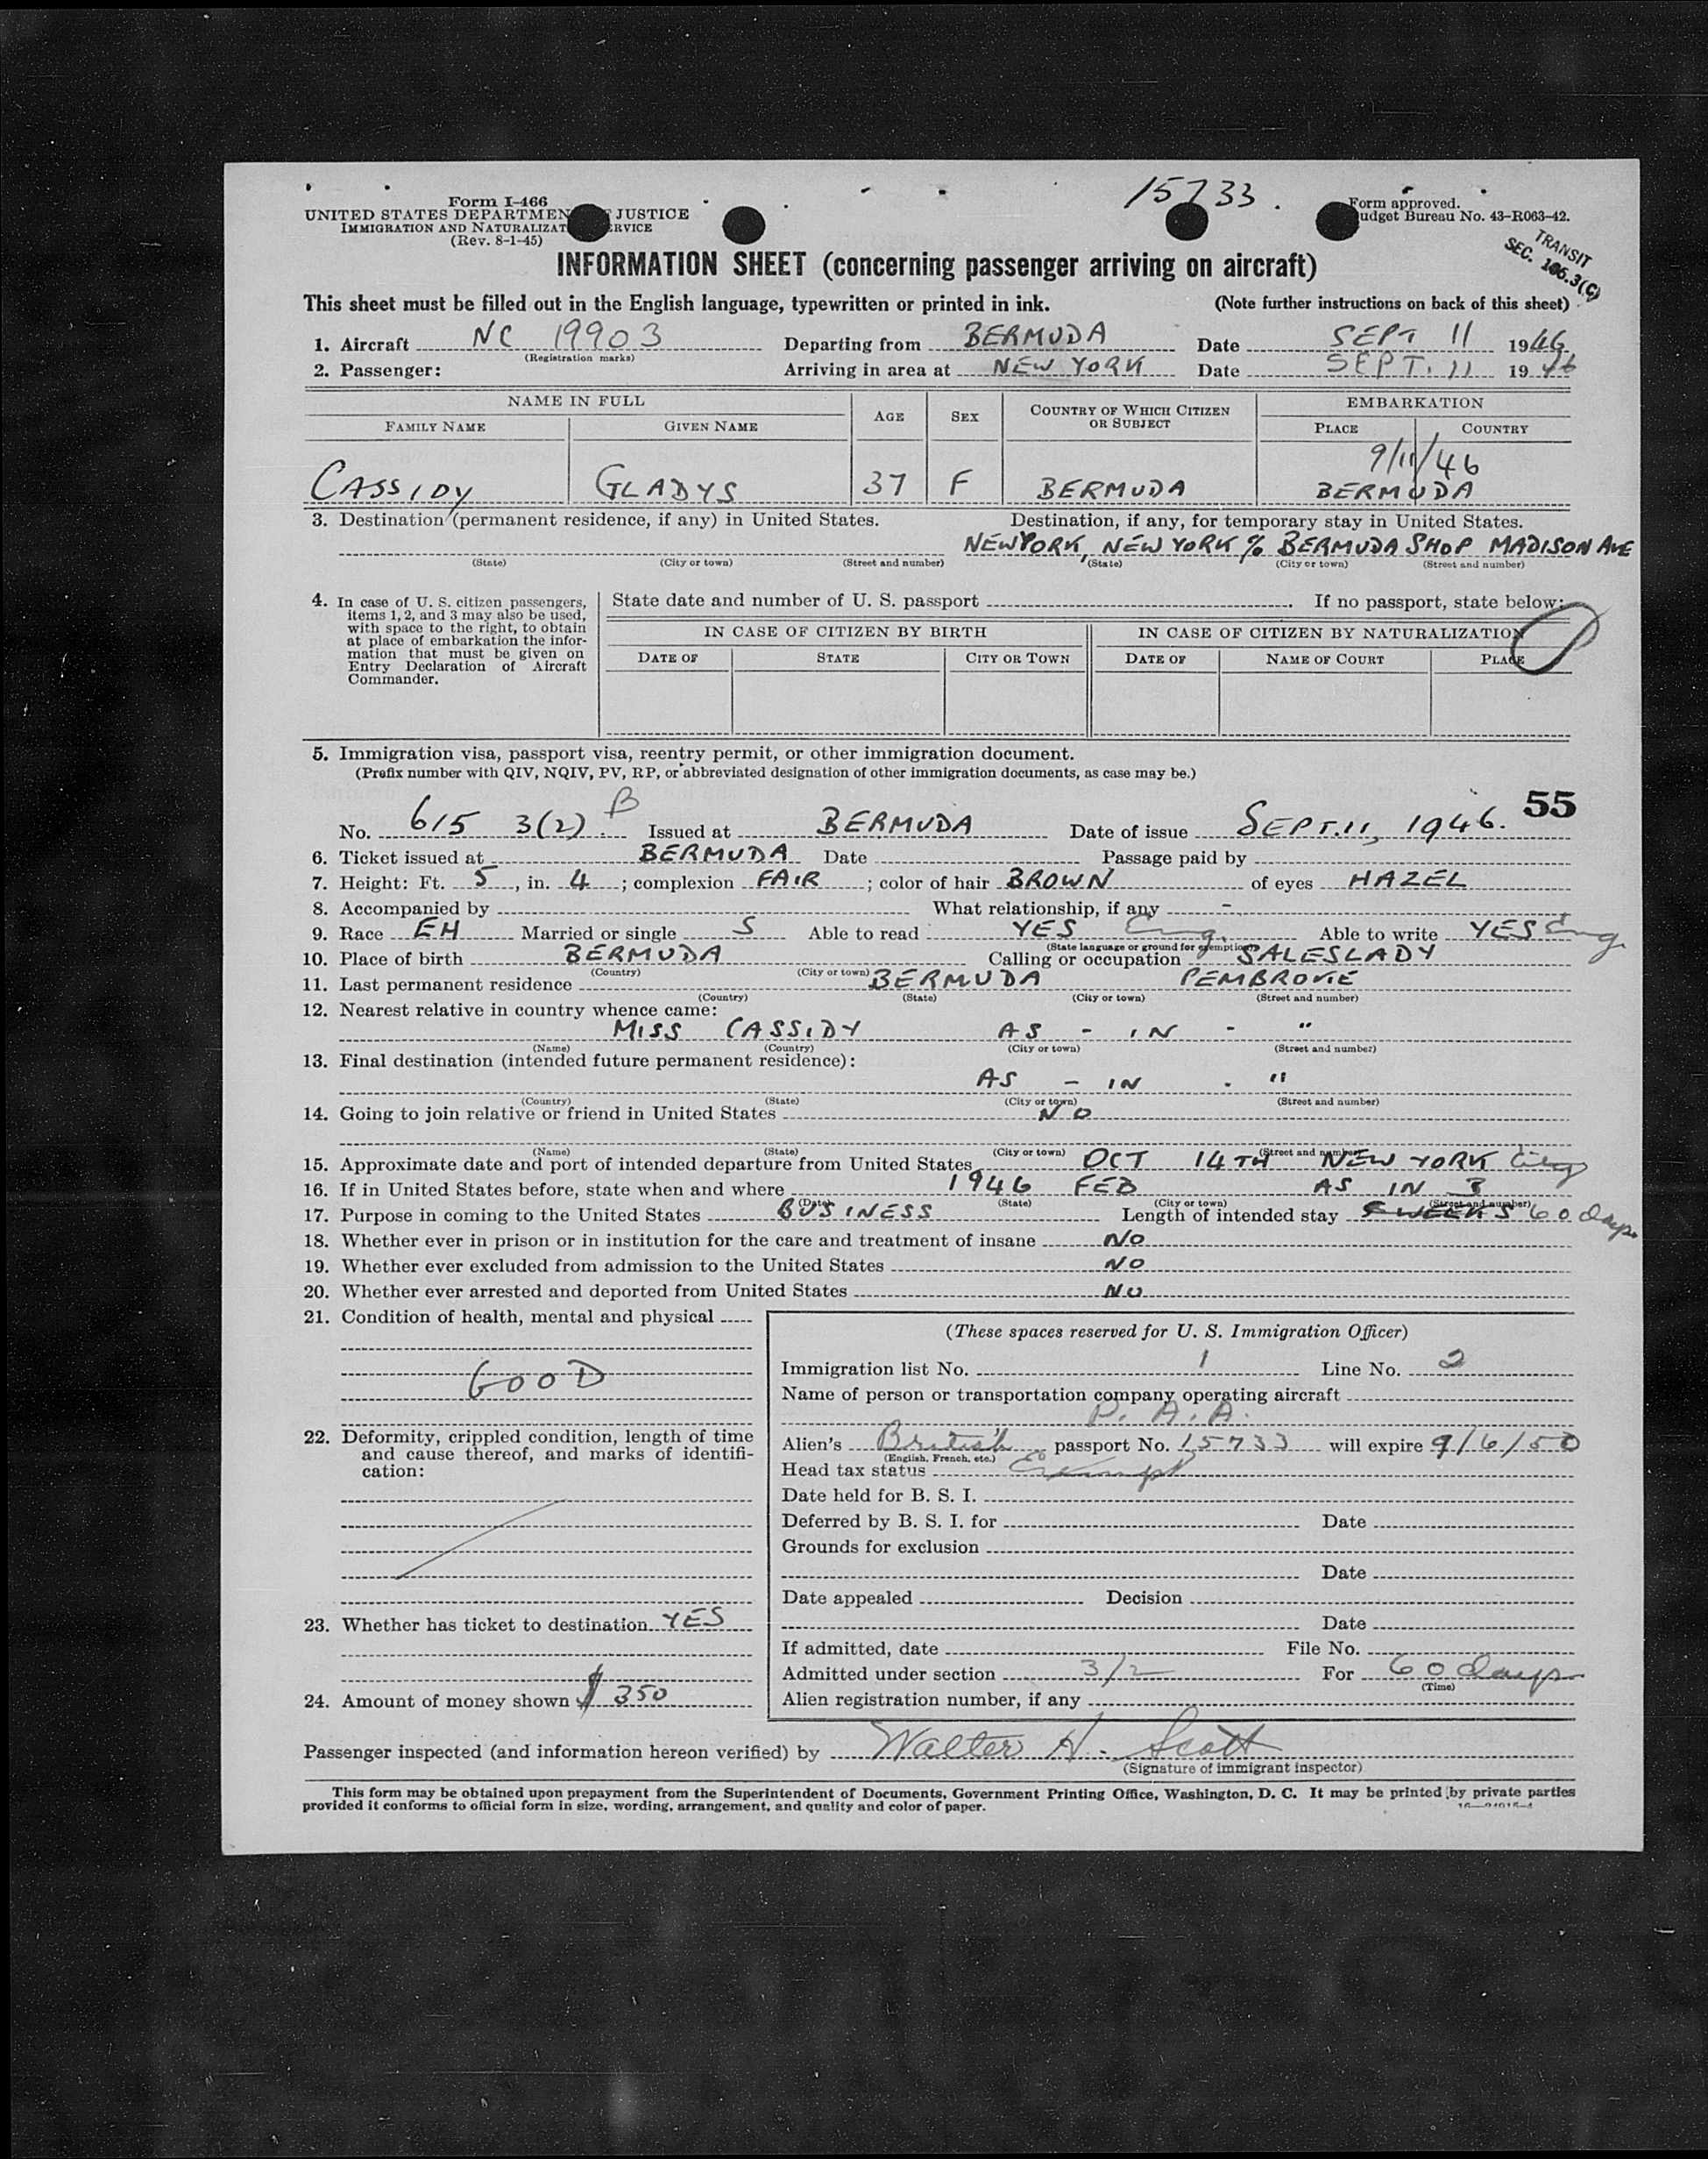 15733.
Form I-466
UNITED STATES DEPARTMEN JUSTICE
IMMIGRATION AND NATURALIZAT RVICE
(Rev. 8-1-45)
Form approved.
udget Bureau No. 43-R063-42.
TRANSIT
SEC. 106.3(C)
INFORMATION SHEET (concerning passenger arriving on aircraft)
This sheet must be filled out in the English language, typewritten or printed in ink. (Note further instructions on back of this sheet)
1. Aircraft NC 19903 Departing from BERMUDA Date SEPT 11 1946
(Registration marks)
2. Passenger: Arriving in area at NEW YORK Date SEPT. 11 1946
NAME IN FULL AGE SEX COUNTRY OF WHICH CITIZEN OR SUBJECT EMBARKATION
FAMILY NAME GIVEN NAME PLACE COUNTRY
9/11/46
CASSIDY GLADYS 37 F BERMUDA BERMUDA
3. Destination (permanent residence, if any) in United States. Destination, if any, for temporary stay in United States.
NEW YORK, NEW YORK % BERMUDA SHOP MADISON AVE
(State) (City or town) (Street and number) (State) (City or town) (Street and number)
4. In case of U. S. citizen passengers, items 1, 2, and 3 may also be used, with space to the right, to obtain at place of embarkation the information that must be given on Entry Declaration of Aircraft Commander.
State date and number of U. S. passport . If no passport, state below:
IN CASE OF CITIZEN BY BIRTH IN CASE OF CITIZEN BY NATURALIZATION
DATE OF STATE CITY OR TOWN DATE OF NAME OF COURT PLACE
5. Immigration visa, passport visa, reentry permit, or other immigration document.
(Prefix number with QIV, NQIV, PV, RP, or abbreviated designation of other immigration documents, as case may be.)
55
No. 615 3(2). B Issued at BERMUDA Date of issue SEPT. 11, 1946.
6. Ticket issued at BERMUDA Date Passage paid by
7. Height: Ft. 5, in. 4; complexion FAIR; color of hair BROWN of eyes HAZEL
8. Accompanied by What relationship, if any -
9. Race EH Married or single S Able to read YES Eng. Able to write YES Eng
(State language or ground for exemption)
10. Place of birth BERMUDA Calling or occupation SALESLADY
(Country) (City or town)
11. Last permanent residence BERMUDA PEMBROKE
(Country) (State) (City or town) (Street and number)
12. Nearest relative in country whence came:
MISS CASSIDY AS - IN - "
(Name) (Country) (City or town) (Street and number)
13. Final destination (intended future permanent residence):
AS - IN - "
(Country) (State) (City or town) (Street and number)
14. Going to join relative or friend in United States NO
(Name) (State) (City or town) (Street and number)
15. Approximate date and port of intended departure from United States OCT 14TH NEW YORK City
16. If in United States before, state when and where 1946 FEB AS IN 3
(Date) (State) (City or town) (Street and number)
17. Purpose in coming to the United States BUSINESS Length of intended stay WEEKS 60 days
18. Whether ever in prison or in institution for the care and treatment of insane NO
19. Whether ever excluded from admission to the United States NO
20. Whether ever arrested and deported from United States NO
21. Condition of health, mental and physical
GOOD
22. Deformity, crippled condition, length of time and cause thereof, and marks of identification:
23. Whether has ticket to destination YES
24. Amount of money shown $ 350
(These spaces reserved for U. S. Immigration Officer)
Immigration list No. 1 Line No. 2
Name of person or transportation company operating aircraft
P. A. A.
Alien's British passport No. 15733 will expire 9/6/50
(English, French, etc.)
Head tax status Exempt
Date held for B. S. I.
Deferred by B. S. I. for Date
Grounds for exclusion
Date
Date appealed Decision
Date
If admitted, date File No.
Admitted under section 3/2 For 60 days
(Time)
Alien registration number, if any
Passenger inspected (and information hereon verified) by Walter H. Scott
(Signature of immigrant inspector)
This form may be obtained upon prepayment from the Superintendent of Documents, Government Printing Office, Washington, D. C. It may be printed by private parties
provided it conforms to official form in size, wording, arrangement, and quality and color of paper.